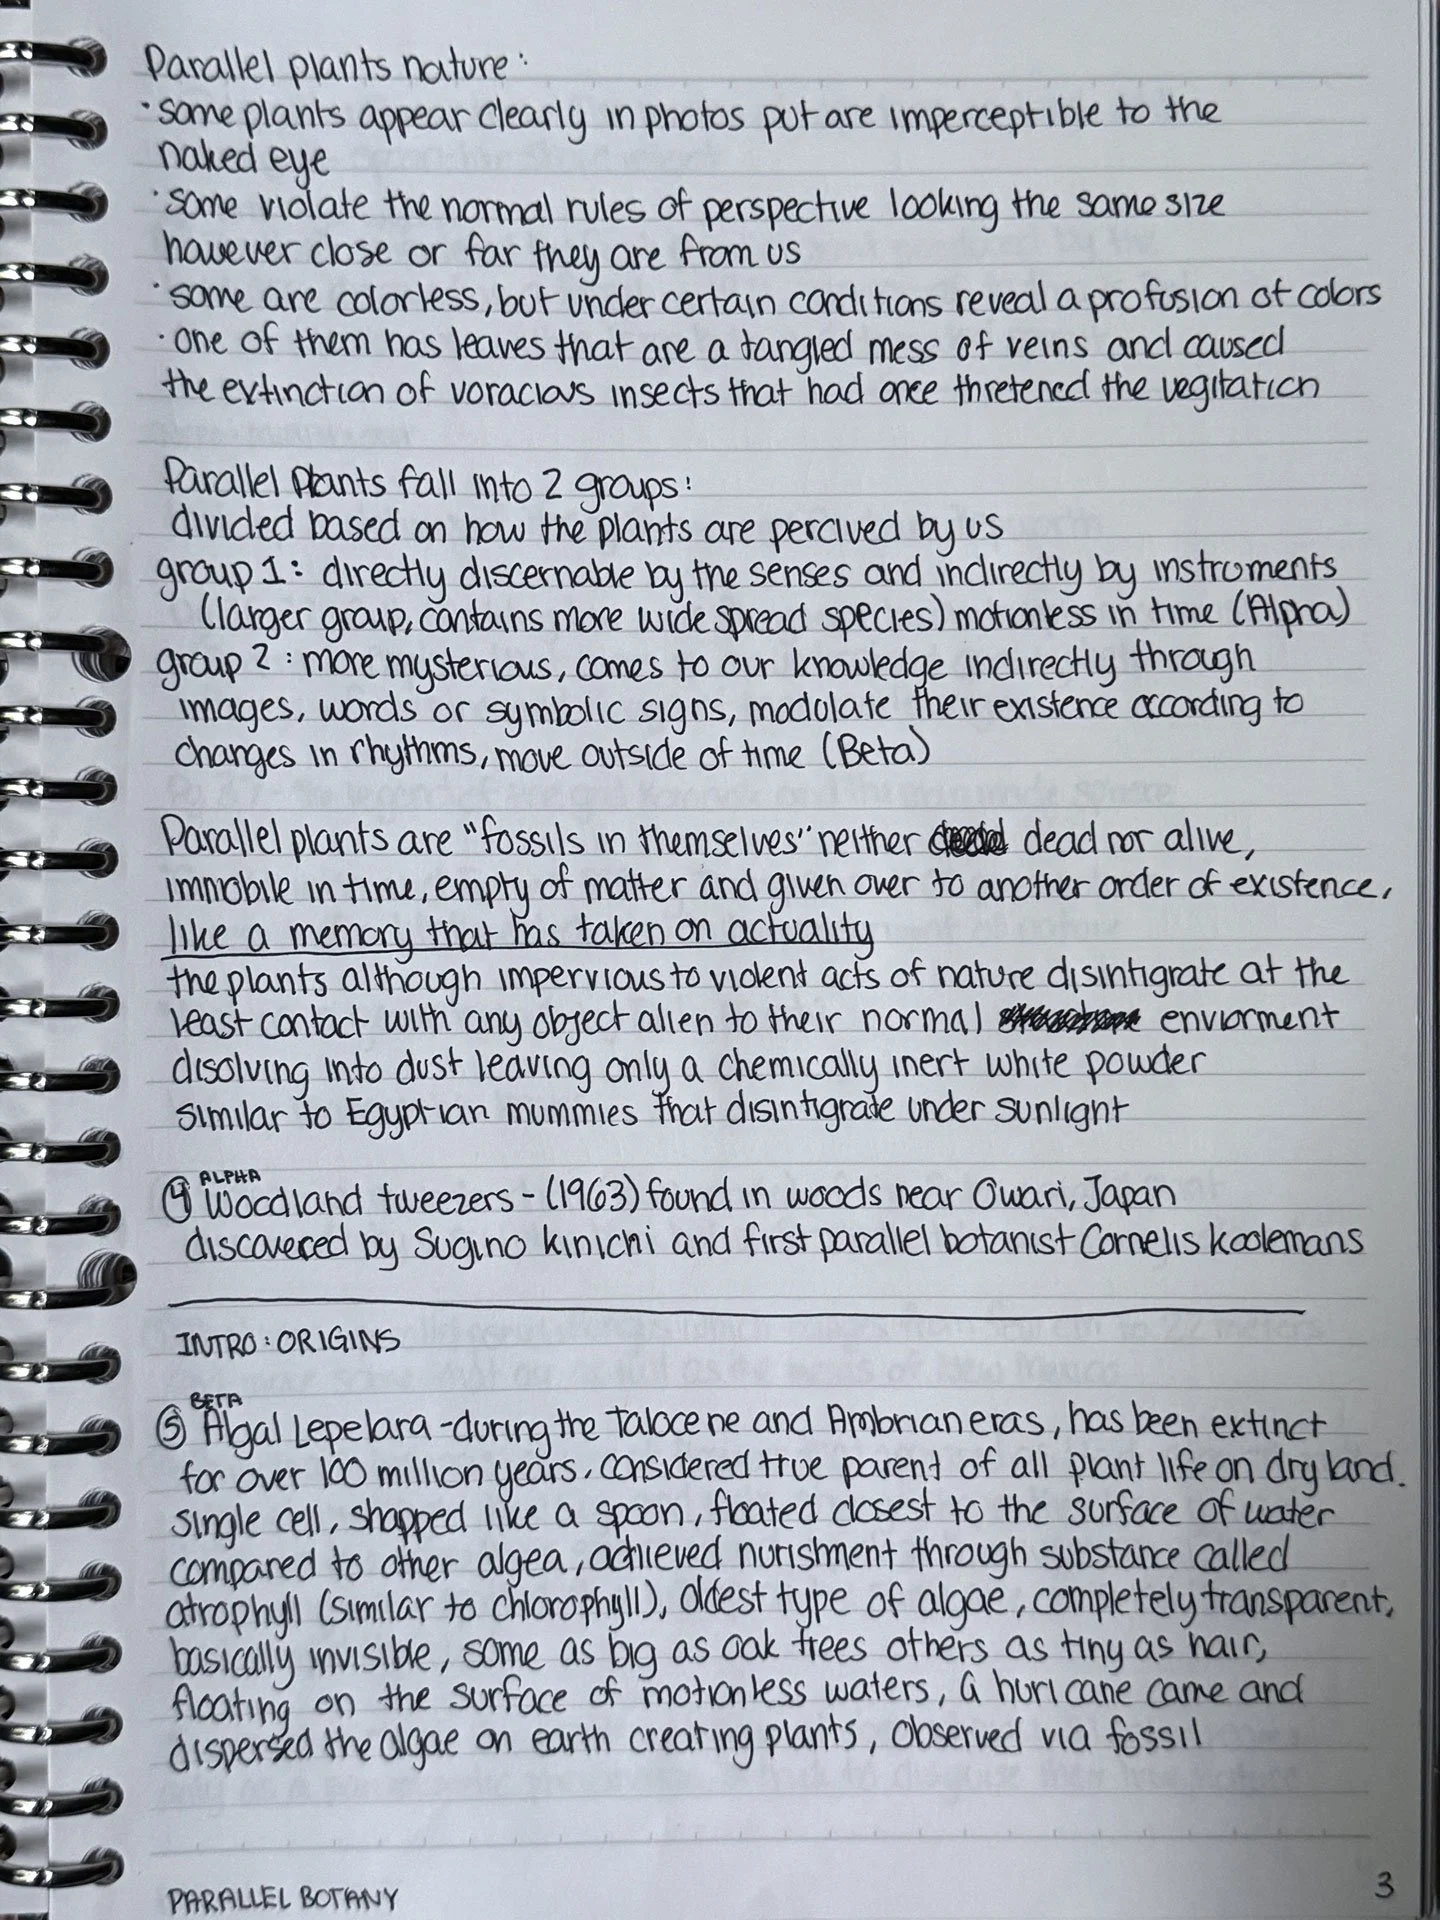 Parallel plants nature:
·some plants appear clearly in photos put are imperceptible to the
naked eye
·some violate the normal rules of perspective looking the same size
however close or far they are from us
·some are colorless, but under certain conditions reveal a profusion of colors
·one of them has leaves that are a tangled mess of veins and caused
the extinction of voracious insects that had once thretened the vegitation
Parallel plants fall into 2 groups:
divided based on how the plants are percived by us
group 1: directly discernable by the senses and indirectly by instruments
(larger group, contains more wide spread species) motionless in time (Alpha)
group 2: more mysterious, comes to our knowledge indirectly through
images, words or symbolic signs, modulate their existence according to
changes in rhythms, move outside of time (Beta)
Parallel plants are "fossils in themselves" neither dead nor alive,
immobile in time, empty of matter and given over to another order of existence,
like a memory that has taken on actuality
the plants although impervious to violent acts of nature disintigrate at the
least contact with any object alien to their normal enviorment
disolving into dust leaving only a chemically inert white powder
similar to Egyptian mummies that disintigrate under sunlight
ALPHA
④ Woodland tweezers - (1963) found in woods near Owari, Japan
discovered by Sugino kinichi and first parallel botanist Cornelis koolemans
INTRO: ORIGINS
BETA
⑤ Algal Lepelara - during the Talocene and Ambrian eras, has been extinct
for over 100 million years. considered true parent of all plant life on dry land.
single cell, shapped like a spoon, floated closest to the surface of water
compared to other algea, achieved nurishment through substance called
atrophyll (similar to chlorophyll), oldest type of algae, completely transparent,
basically invisible, some as big as oak trees others as tiny as hair,
floating on the surface of motionless waters, a huricane came and
dispersed the algae on earth creating plants, observed via fossil
PARALLEL BOTANY
3